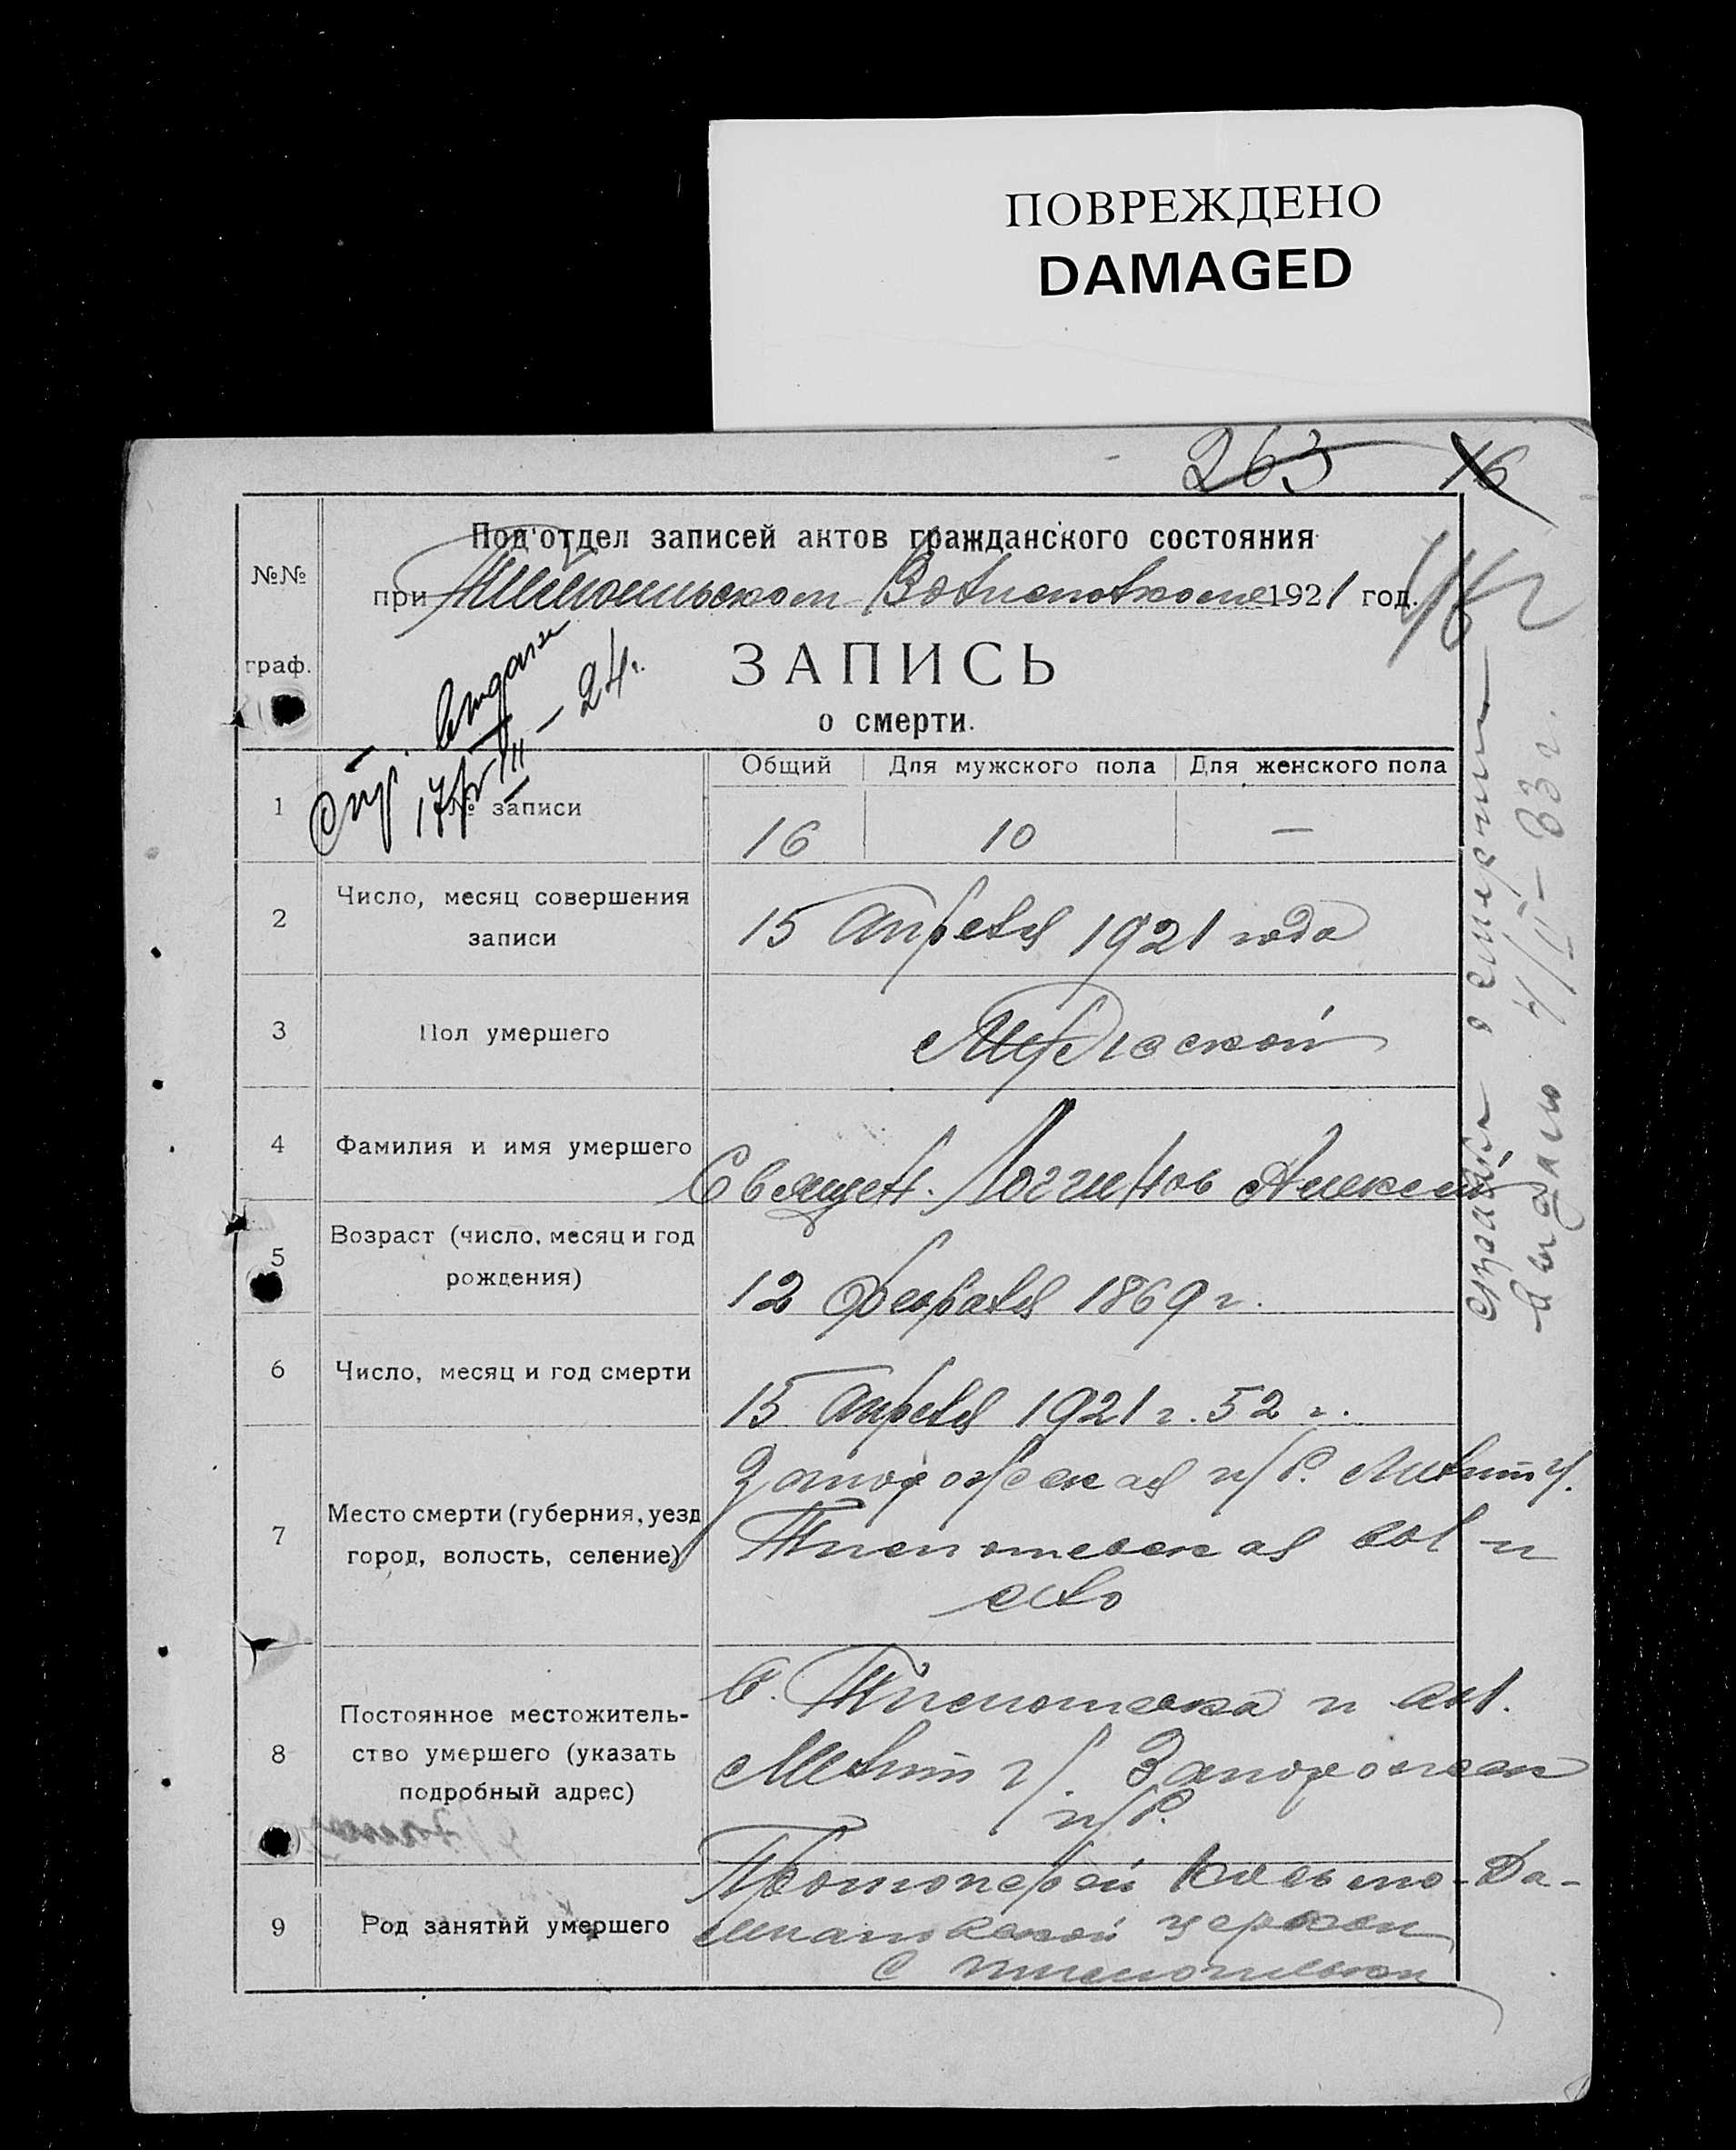 ПОВРЕЖДЕНО
DAMAGED
263 16
№№ граф.
Под'отдел записей актов гражданского состояния
при Волисполкоме 1921 год.
ЗАПИСЬ
о смерти.
Спр. выдана
17/VIII – 24 г.
Общий Для мужского пола Для женского пола
1 № записи 16 10 —
2 Число, месяц совершения
записи
15 Апреля 1921 года
3 Пол умершего Мужской
4 Фамилия и имя умершего Священ. Логгинов Алексей
5 Возраст (число, месяц и год
рождения)
12 Февраля 1869 г.
6 Число, месяц и год смерти 15 Апреля 1921 г. 52 г.
7 Место смерти (губерния, уезд
город, волость, селение)
Запорожская г/б. Мелит у.
вол и
село
8 Постоянное местожитель-
ство умершего (указать
подробный адрес)
С. и вол.
Мелит у. Запорожск
г/б.
9 Род занятий умершего
Протоиерей Косьмо-Да-
миановской церкви
с
Справка о смерти
выдано 4/II – 33 г.